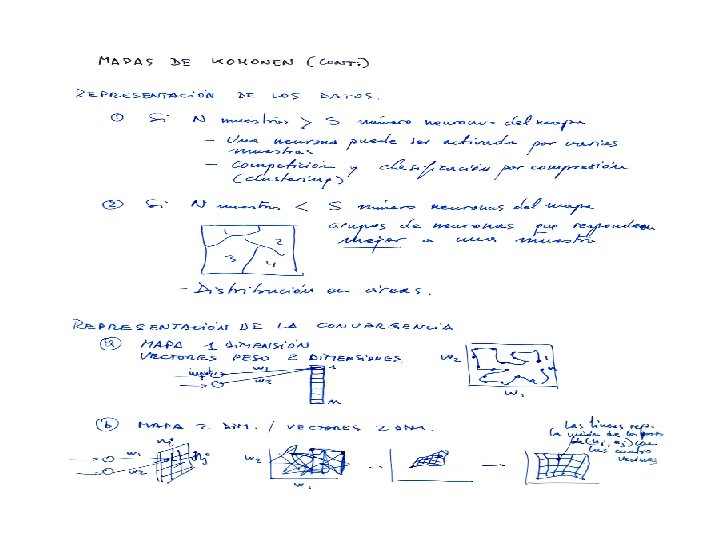 MAPAS DE KOHONEN (CONT.)
REPRESENTACIÓN DE LOS DATOS.
① Si N muestras > S número neuronas del mapa
- Una neurona puede ser activada por varias
muestras
- Competición y clasificación por compresión
(clustering)
② Si N muestras < S número neuronas del mapa
Grupos de neuronas que responden
mejor a una muestra
1
2
3
4
- Distribución en áreas.
REPRESENTACIÓN DE LA CONVERGENCIA
ⓐ MAPA 1 DIMENSIÓN
VECTORES PESO 2 DIMENSIONES
inputs
w1
w2
1
n
w2
w1
ⓑ MAPA 2 DIM. / VECTORES 2 DIM.
w1
w2
ni
nj
w2
w1
Las líneas rep.
la unión de los
sus cuatro
vecinas